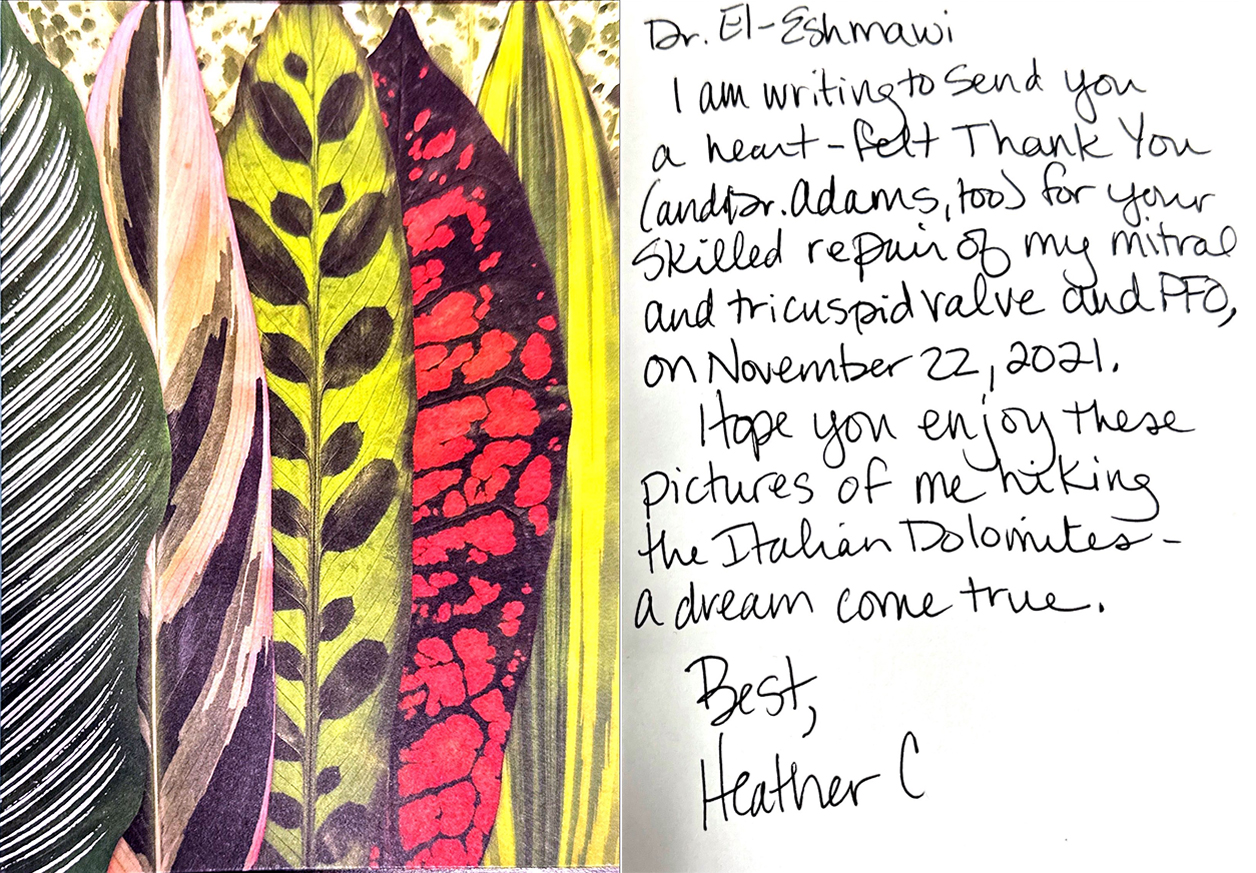 Dr. El-Eshmawi
I am writing to send you
a heart-felt Thank You
(and Dr. Adams, too) for your
skilled repair of my mitral
and tricuspid valve and PFO,
on November 22, 2021.
Hope you enjoy these
pictures of me hiking
the Italian Dolomites -
a dream come true.
Best,
Heather C